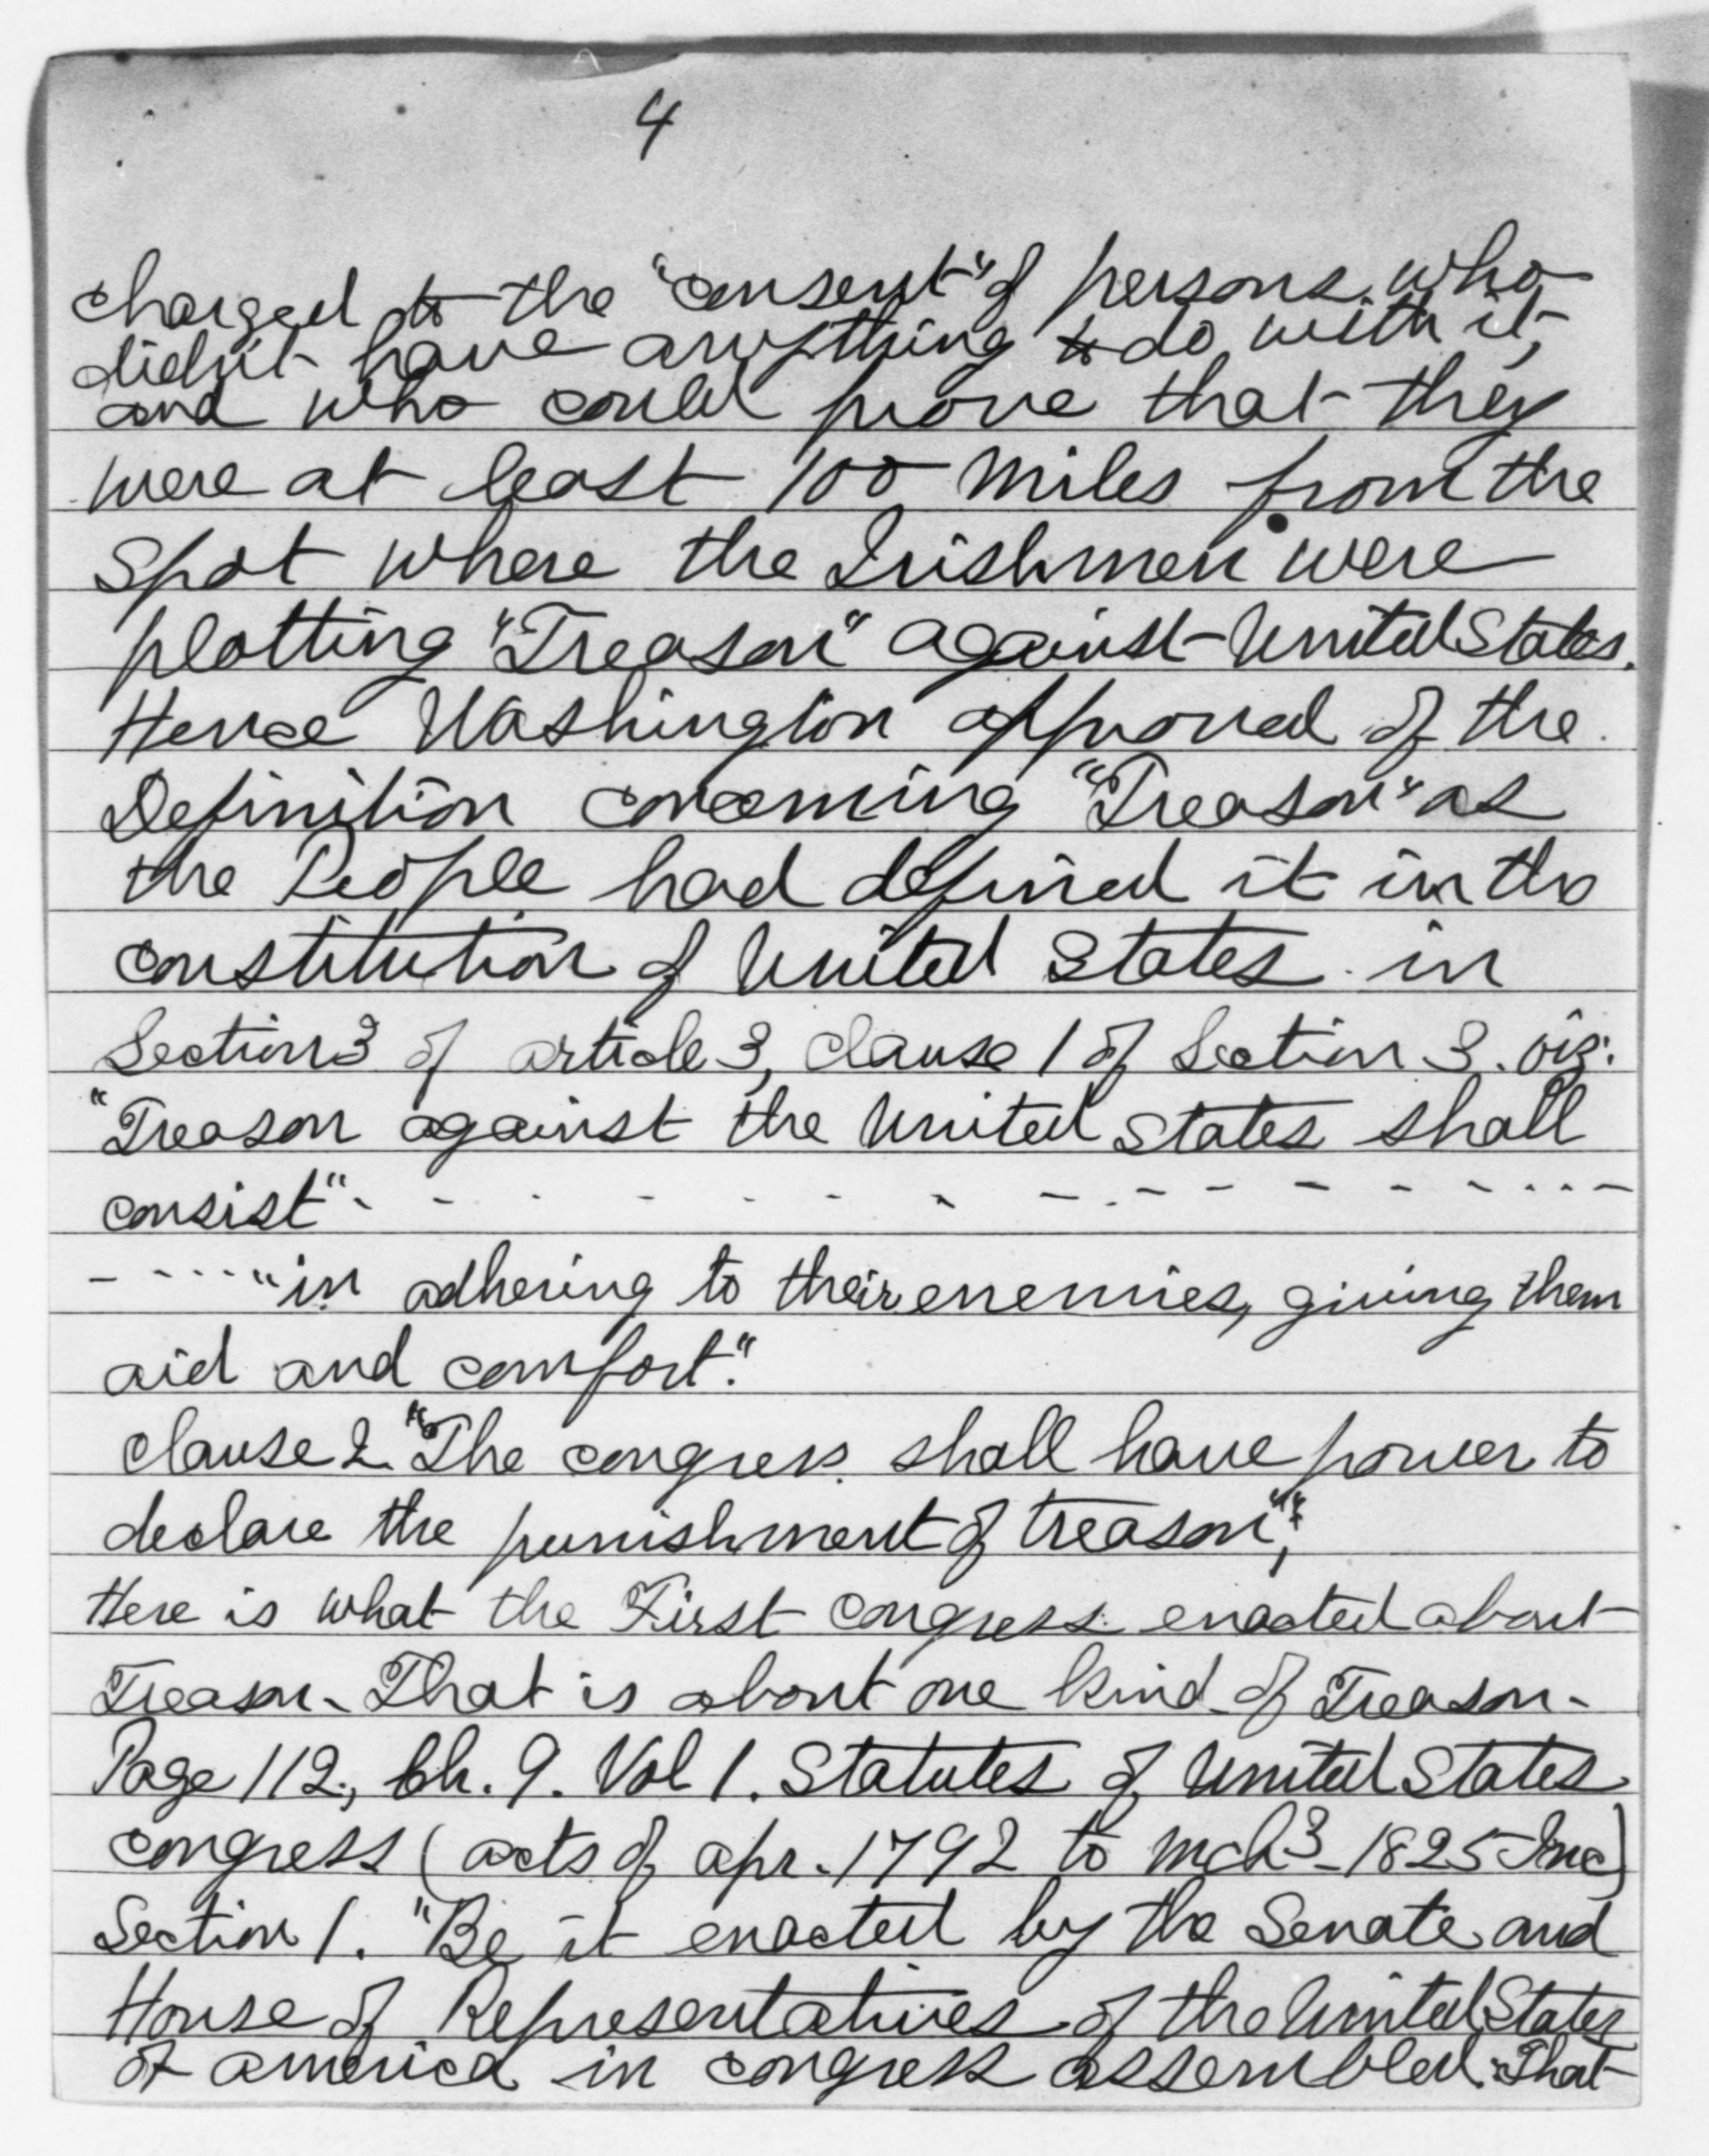 4
charged to the "consent" of persons who
didn't have anything to do with it,
and who could prove that they
were at least 100 miles from the
Spot where the Irishmen were
plotting "Treason" against United States.
Hence Washington approved of the
Definition concerning "Treason" as
the People had defined it in the
constitution of United States in
Section 3 of article 3, Clause 1 of Section 3. viz:
"Treason against the United States shall
consist" - - - - - - - - - - - - - - - -
- - - - - "in adhering to their enemies, giving them
aid and comfort."
Clause 2. "The congress shall have power to
declare the punishment of treason";
Here is what the First Congress enacted about
Treason - That is about one kind of Treason -
Page 112, Ch. 9. Vol 1. Statutes of United States
Congress (acts of apr. 1792 to Mch 3 - 1825 Inc)
Section 1. "Be it enacted by the Senate and
House of Representatives of the United States
of america in congress assembled. That